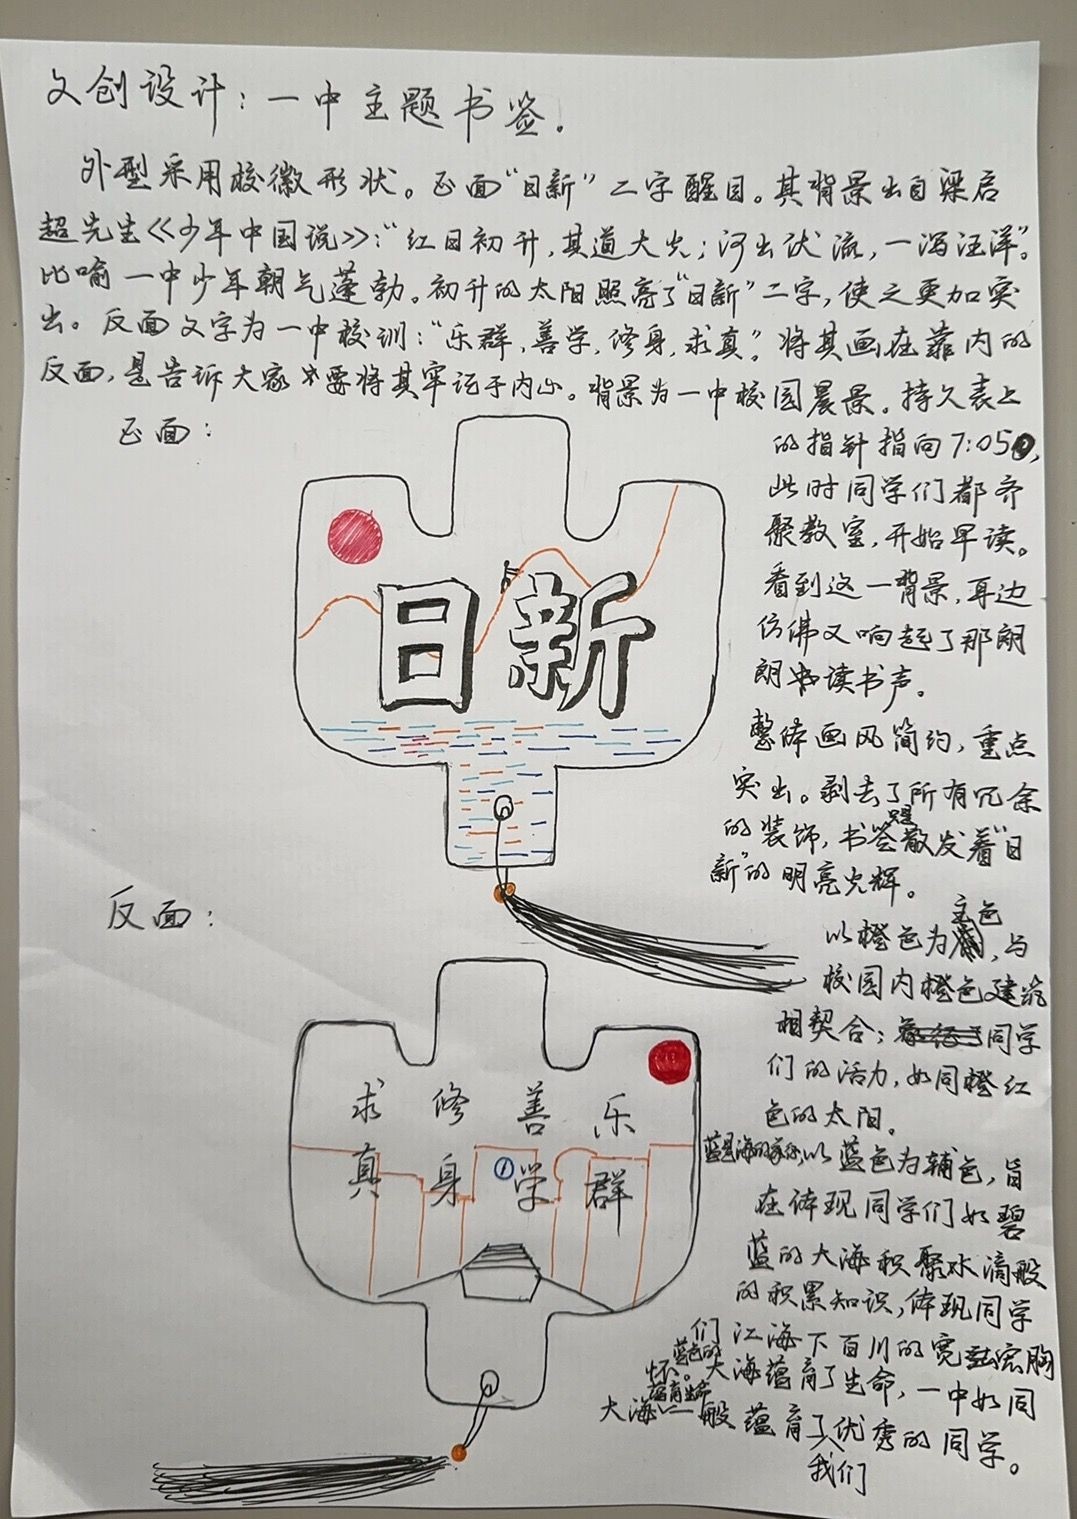 文创设计：一中主题书签.
外型采用校徽形状。正面“日新”二字醒目。其背景出自梁启
超先生《少年中国说》：“红日初升，其道大光；河出伏流，一泻汪洋”。
比喻一中少年朝气蓬勃。初升的太阳照亮了“日新”二字，使之更加突
出。反面文字为一中校训：“乐群，善学，修身，求真”。将其画在靠内的
反面，是告诉大家要将其牢记于内心。背景为一中校园晨景。持久表上
正面：
的指针指向7:05，
此时同学们都齐
聚教室，开始早读。
看到这一背景，耳边
仿佛又响起了那朗
朗读书声。
日新
整体画风简约，重点
突出。剥去了所有冗余
的装饰，书签只是散发着“日
新”的明亮光辉。
反面：
以橙色为主色，与
校园内橙色建筑
相契合；同学
们的活力，如同橙红
色的太阳。
乐群
善学
修身
求真
蓝是海的象征，以蓝色为辅色，旨
在体现同学们如碧
蓝的大海积聚水滴般
的积累知识，体现同学
们江海下百川的宽宏胸
怀。蓝色的大海蕴育了生命，一中如同
大海蕴育生命一般蕴育了我们优秀的同学。